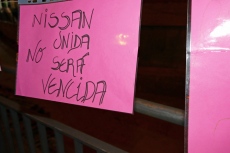 NISSAN
UNIDA
NO SERÁ
VENCIDA